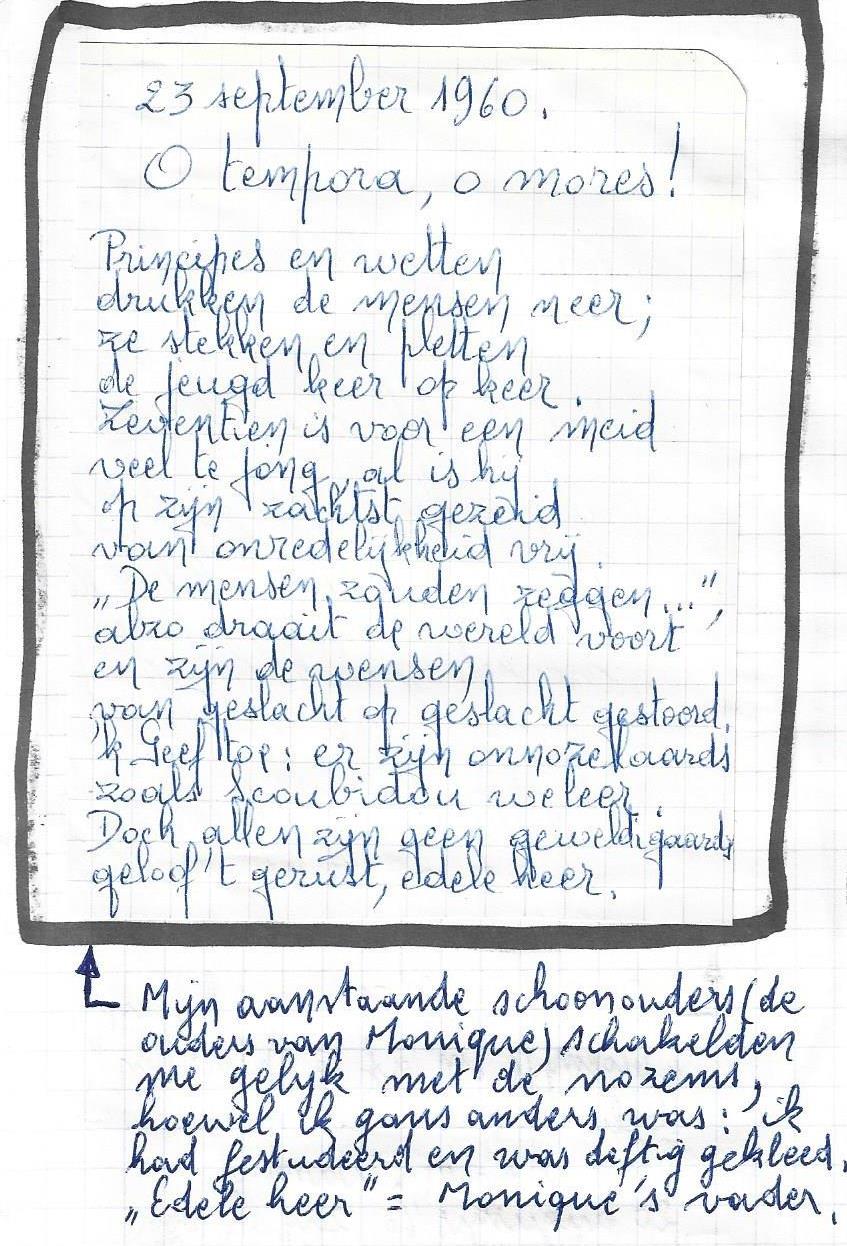 23 september 1960.
O tempora, o mores!
Principes en wetten
drukken de mensen neer;
ze stekken en pletten
de jeugd keer op keer.
Zeventien is voor een meid
veel te jong, al is hij
op zijn zachtst gezeid
van onredelijkheid vrij.
„De mensen zouden zeggen...",
alzo draait de wereld voort
en zijn de wensen
van geslacht op geslacht gestoord.
'k Geef toe: er zijn onnozelaards
zoals Scoubidou weleer.
Doch allen zijn geen geweldigaards
geloof 't gerust, edele heer.
Mijn aanstaande schoonouders (de
ouders van Monique) schakelden
me gelijk met de nozems,
hoewel ik gans anders was: ik
had gestudeerd en was deftig gekleed.
„Edele heer" = Monique's vader.